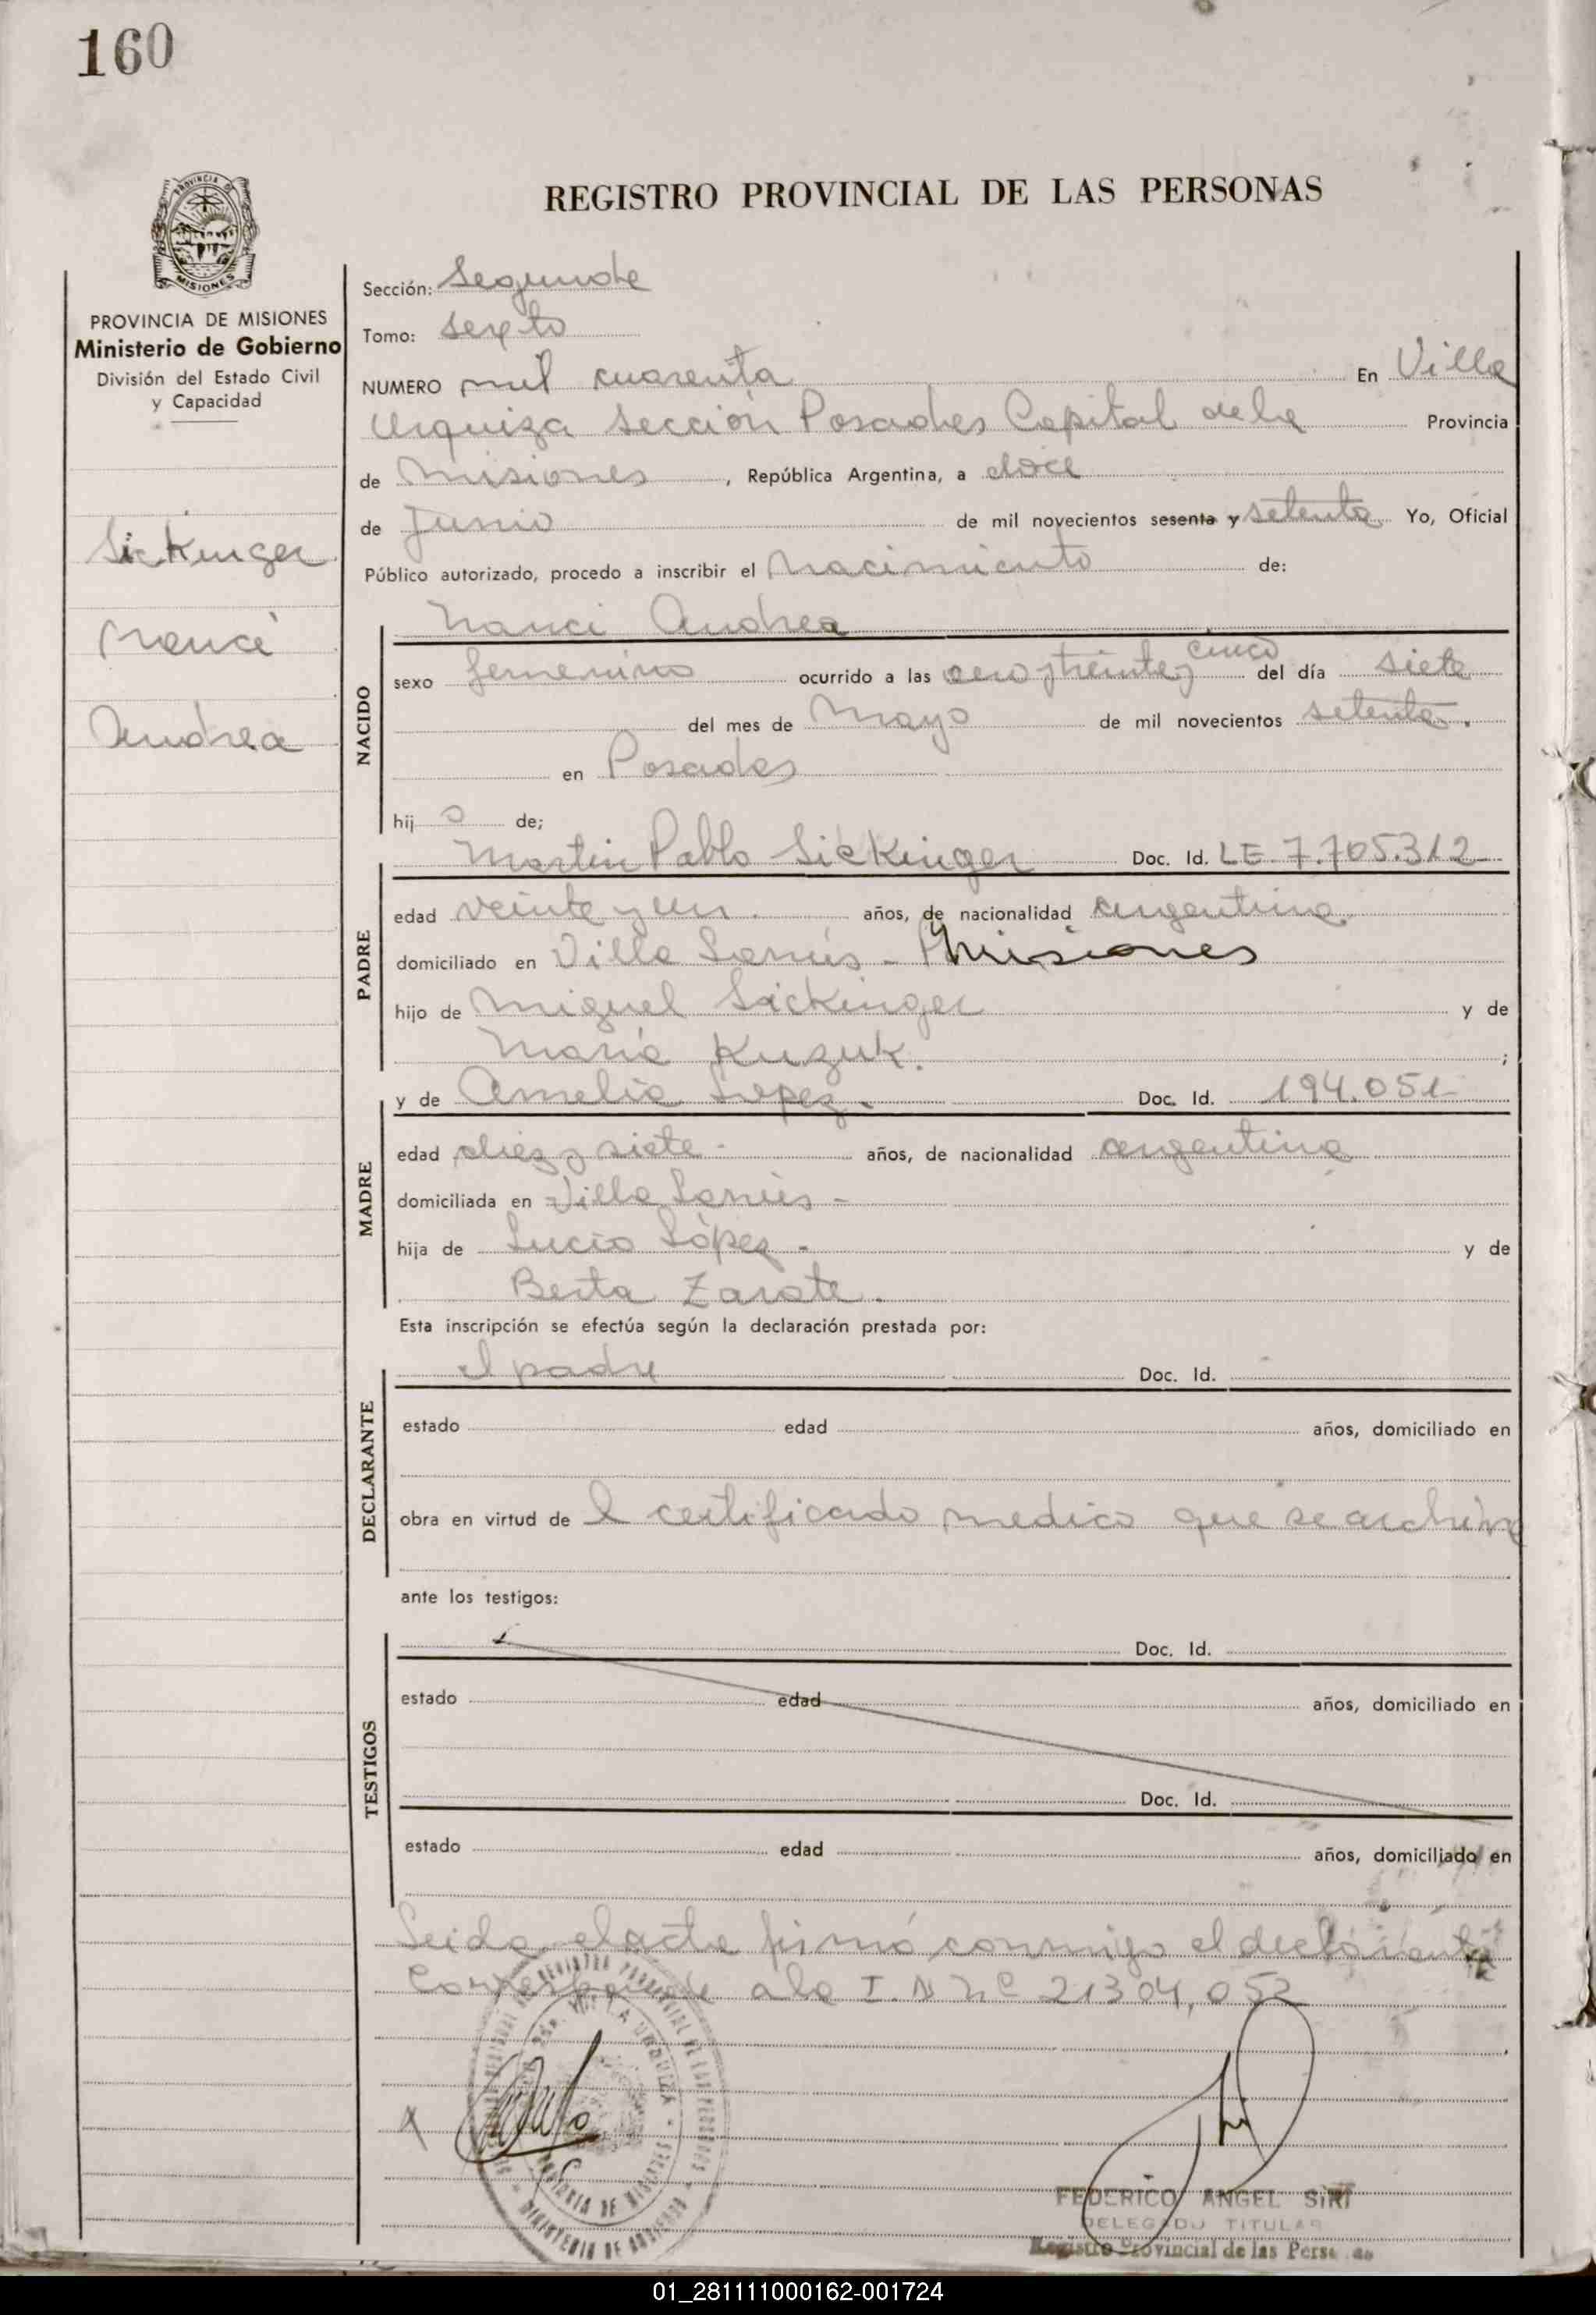 160
REGISTRO PROVINCIAL DE LAS PERSONAS
PROVINCIA DE MISIONES
Ministerio de Gobierno
División del Estado Civil
y Capacidad
Sickinger
Nanci
Andrea
Sección: Segunda
Tomo: Sexto
NUMERO mil cuarenta En Villa
Urquiza Sección Posadas Capital de la Provincia
de Misiones, República Argentina, a doce
de Junio de mil novecientos sesenta y setenta Yo, Oficial
Público autorizado, procedo a inscribir el Nacimiento de:
NACIDO
Nanci Andrea
sexo femenino ocurrido a las cero y treinta y cinco del día siete
del mes de Mayo de mil novecientos setenta.
en Posadas
hij o de;
PADRE
Martin Pablo Sickinger Doc. Id. LE. 7.705.312
edad veinte y un. años, de nacionalidad argentina.
domiciliado en Villa Lanús - Misiones
hijo de Miguel Sickinger y de
María Kuzuk. ;
MADRE
y de Amelia Lopez. Doc. Id. 194.051
edad diez y siete - años, de nacionalidad argentina
domiciliada en Villa Lanús -
hija de Lucio López - y de
Berta Zarate.
Esta inscripción se efectúa según la declaración prestada por:
DECLARANTE
el padre Doc. Id.
estado edad años, domiciliado en
obra en virtud de l certificado medico que se archiva
ante los testigos:
TESTIGOS
Doc. Id.
estado edad años, domiciliado en
Doc. Id.
estado edad años, domiciliado en
Leida el acta firmó conmigo el declarante
Corresponde a la I. N Nº 21304,052
FEDERICO ANGEL SIRI
DELEGADO TITULAR
Registro Provincial de las Personas
01_281111000162-001724